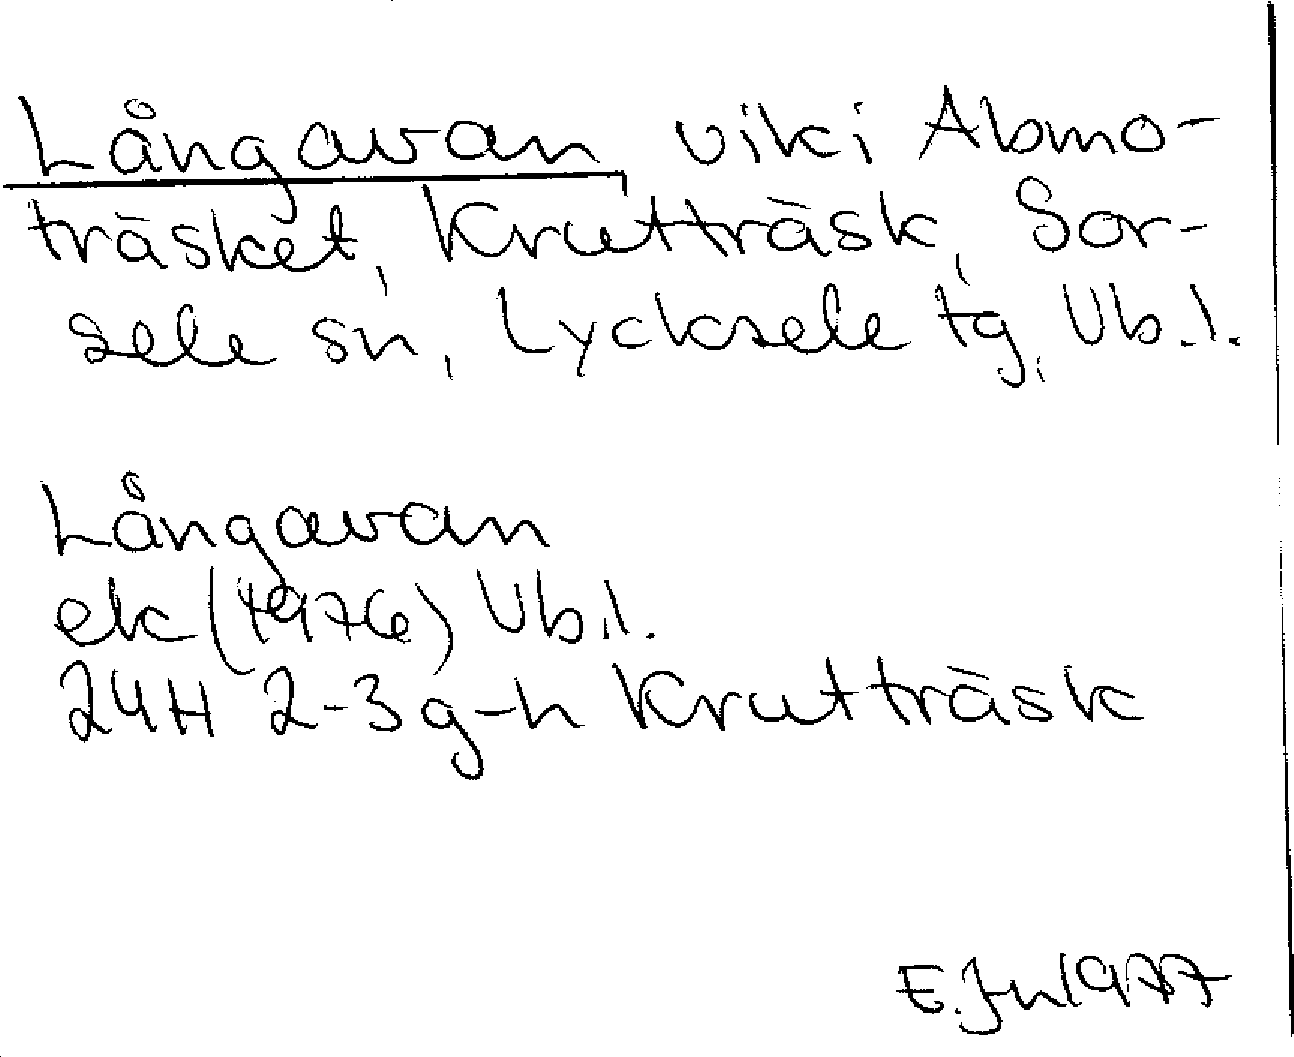 Långavan vik i Abmo-
träsket, Krutträsk, Sor-
sele sn, Lycksele tg, Vb.l.
Långavan
ek (1976) Vb.l.
24H 2-3 g-h Krutträsk
E. Jn 1977